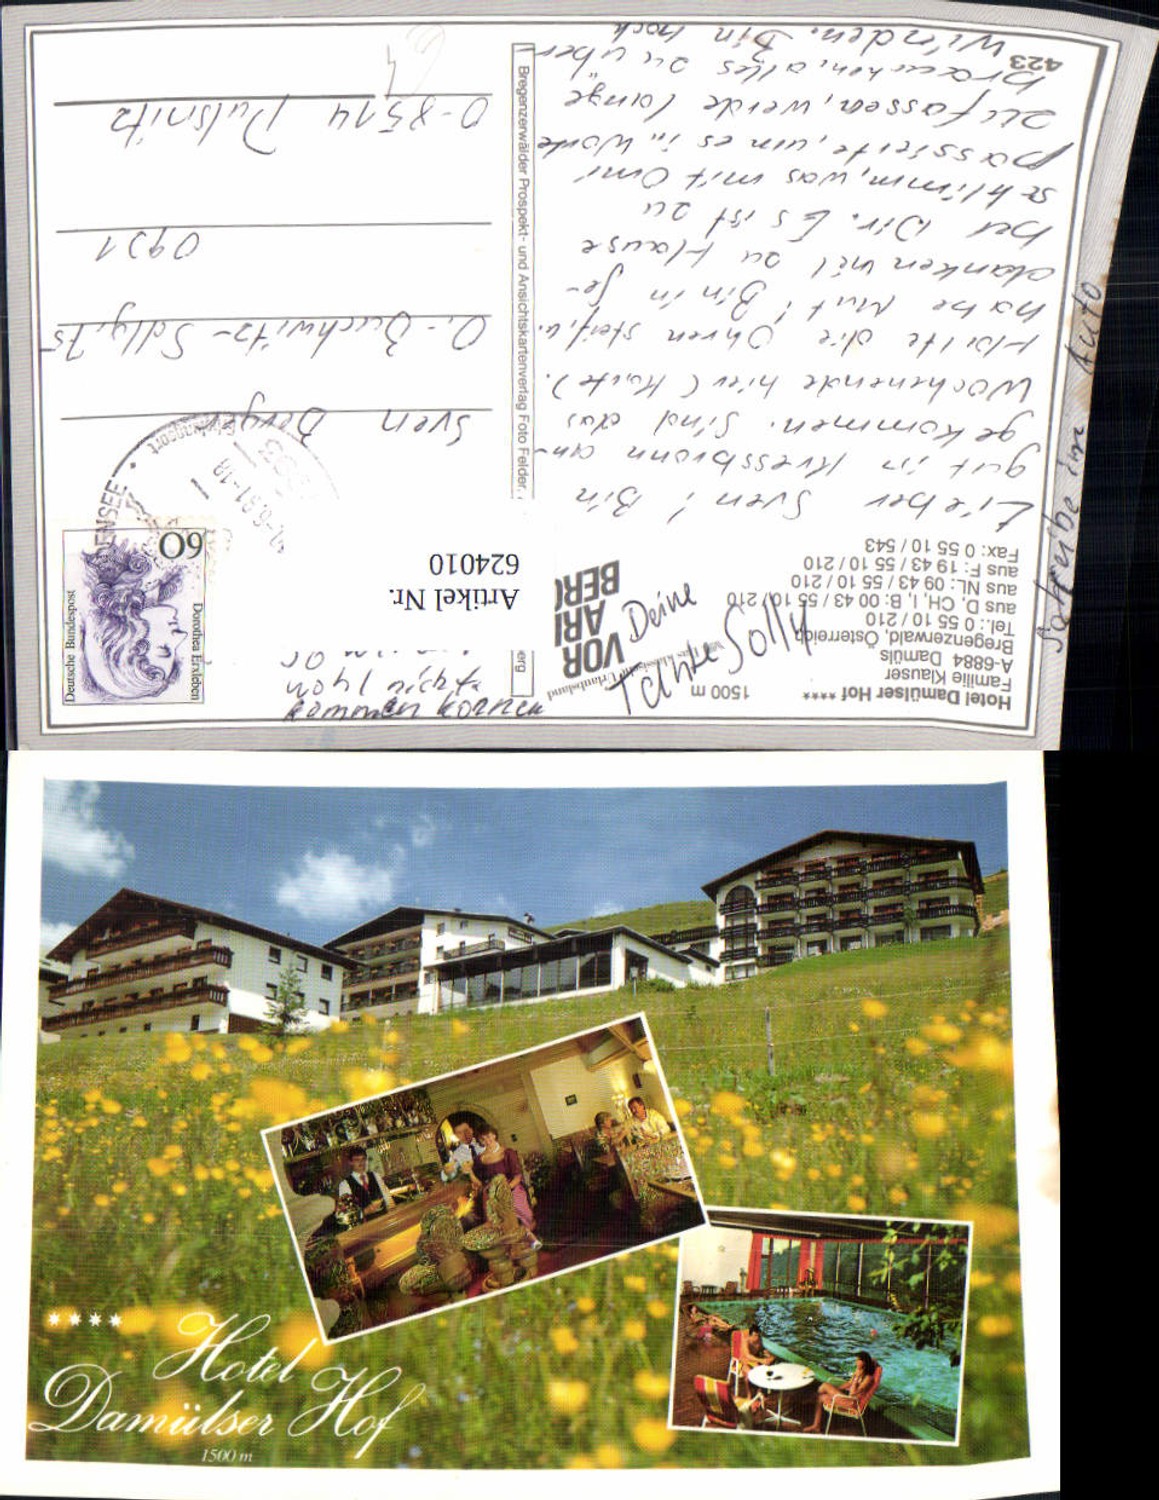 Hotel Damülser Hof ****
Familie Klauser
A-6884 Damüls
Bregenzerwald, Österreich
Tel.: 0 55 10 / 210
aus D, CH, I, B: 00 43 / 55 10 / 210
aus NL: 09 43 / 55 10 / 210
aus F: 19 43 / 55 10 / 210
Fax: 0 55 10 / 543
1500 m
VOR
ARL
BERG
Lieber Sven! Bin
gut in Kressbronn an-
gekommen. Sind das
Wochenende hier (Karte).
Halte die Ohren steif, u.
habe Mut! Bin in Ge-
danken viel zu Hause
bei Dir. Es ist zu
schlimm, was mit Omi
passierte, um es in Worte
zu fassen, werde lange
brauchen, alles zu über-
winden. Bin noch
423
Schreibe im Auto
Deine
Tante Solly
kommen können
Artikel Nr.
624010
Bregenzerwälder Prospekt- und Ansichtskartenverlag Foto Felder,
erg
Deutsche Bundespost
Dorothea Erxleben
60
ENSEE
Sven Berger
O.-Buchwitz-Sdlg. 75
0921
O-8514 Pulsnitz
****
Hotel
Damülser Hof
1500 m